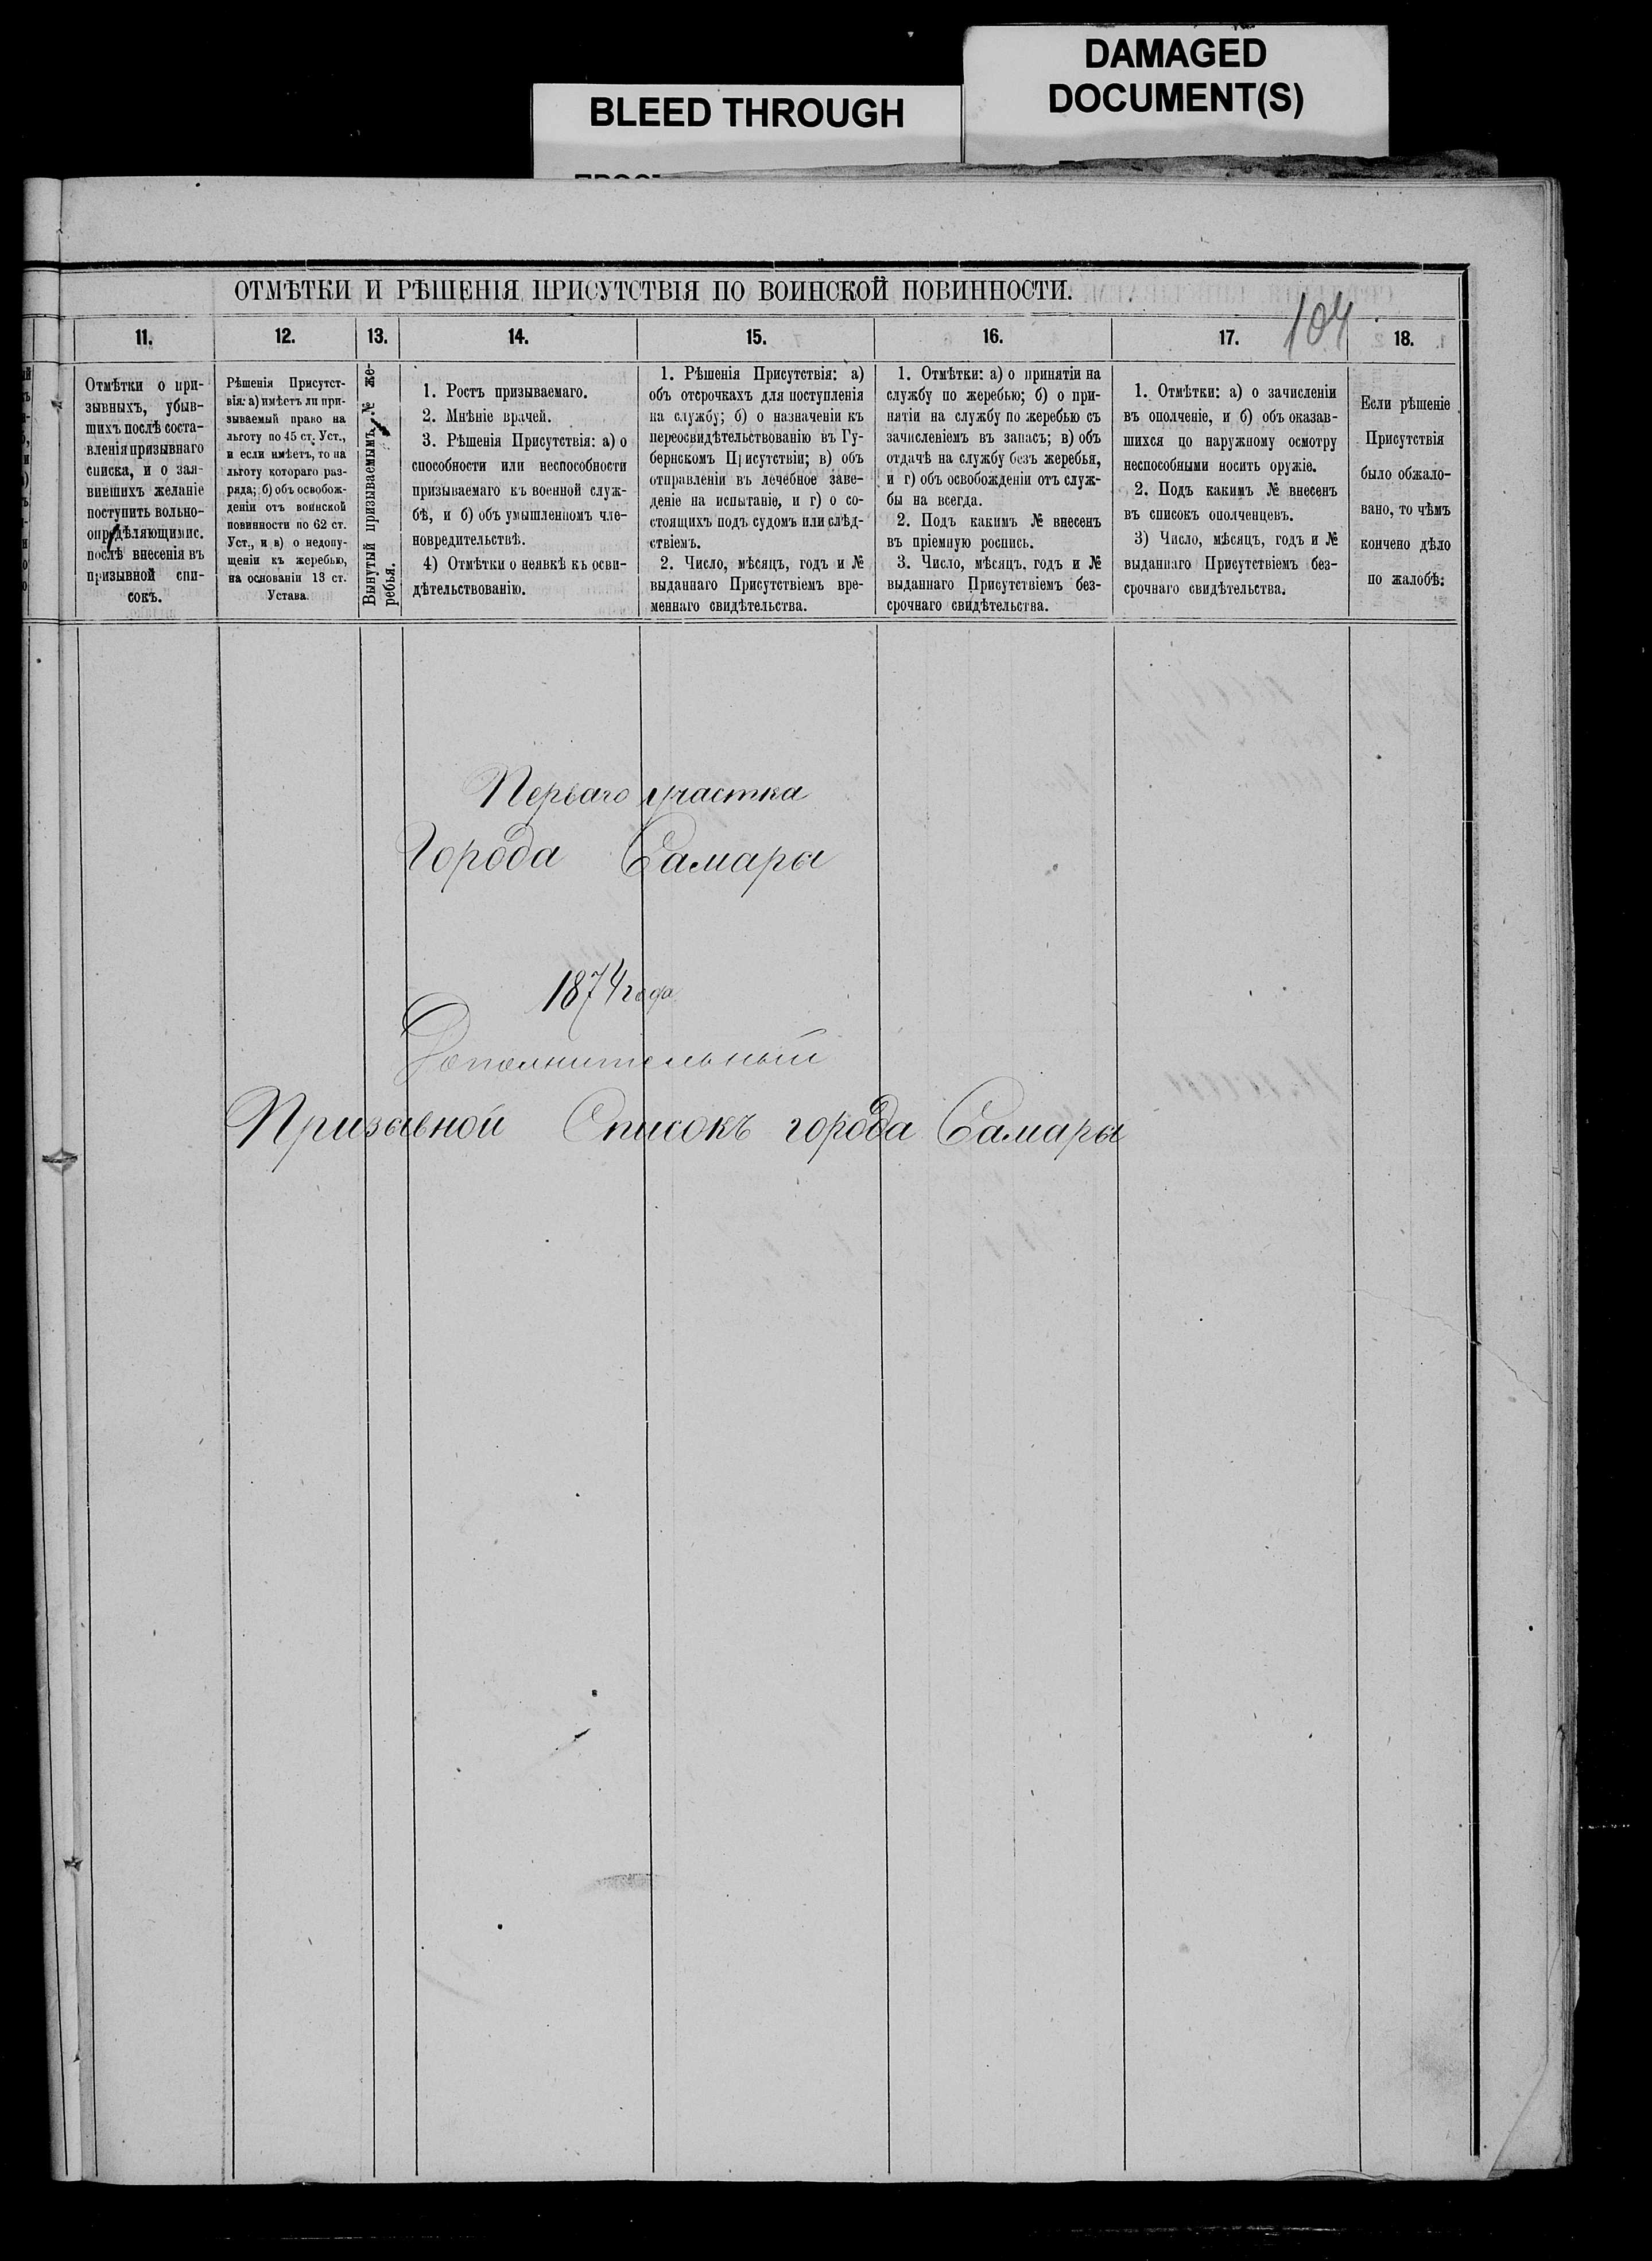 DAMAGED
DOCUMENT(S)
BLEED THROUGH
ОТМѢТКИ И РѢШЕНІЯ ПРИСУТСТВІЯ ПО ВОИНСКОЙ ПОВИННОСТИ.
104
11.
12.
13.
14.
15.
16.
17.
18.
Отмѣтки о при-
зывныхъ, убыв-
шихъ послѣ соста-
вленія призывнаго
списка, и о зая-
вившихъ желаніе
поступить вольно-
опредѣляющимис.
послѣ внесенія въ
призывной спи-
сокъ.
Рѣшенія Присутст-
вія: а) имѣетъ ли при-
зываемый право на
льготу по 45 ст. Уст.,
и если имѣетъ, то на
льготу котораго раз-
ряда; б) объ освобож-
деніи отъ воинской
повинности по 62 ст.
Уст., и в) о недопу-
щеніи къ жеребью,
на основаніи 13 ст.
Устава.
Вынутый призываемымъ № же-
ребья.
1. Ростъ призываемаго.
2. Мнѣніе врачей.
3. Рѣшенія Присутствія: а) о
способности или неспособности
призываемаго къ военной служ-
бѣ, и б) объ умышленномъ чле-
новредительствѣ.
4) Отмѣтки о неявкѣ къ осви-
дѣтельствованію.
1. Рѣшенія Присутствія: а)
объ отсрочкахъ для поступленія
на службу; б) о назначеніи къ
переосвидѣтельствованію въ Гу-
бернскомъ Присутствіи; в) объ
отправленіи въ лечебное заве-
деніе на испытаніе, и г) о со-
стоящихъ подъ судомъ или слѣд-
ствіемъ.
2. Число, мѣсяцъ, годъ и №
выданнаго Присутствіемъ вре-
меннаго свидѣтельства.
1. Отмѣтки: а) о принятіи на
службу по жеребью; б) о при-
нятіи на службу по жеребью съ
зачисленіемъ въ запасъ; в) объ
отдачѣ на службу безъ жеребья,
и г) объ освобожденіи отъ служ-
бы на всегда.
2. Подъ какимъ № внесенъ
въ пріемную роспись.
3. Число, мѣсяцъ, годъ и №
выданнаго Присутствіемъ без-
срочнаго свидѣтельства.
1. Отмѣтки: а) о зачисленіи
въ ополченіе, и б) объ оказав-
шихся по наружному осмотру
неспособными носить оружіе.
2. Подъ какимъ № внесенъ
въ списокъ ополченцевъ.
3) Число, мѣсяцъ, годъ и №
выданнаго Присутствіемъ без-
срочнаго свидѣтельства.
Если рѣшеніе
Присутствія
было обжало-
вано, то чѣмъ
кончено дѣло
по жалобѣ:
Перваго участка
Города Самары
1874 года
Дополнительный
Призывной Списокъ города Самары